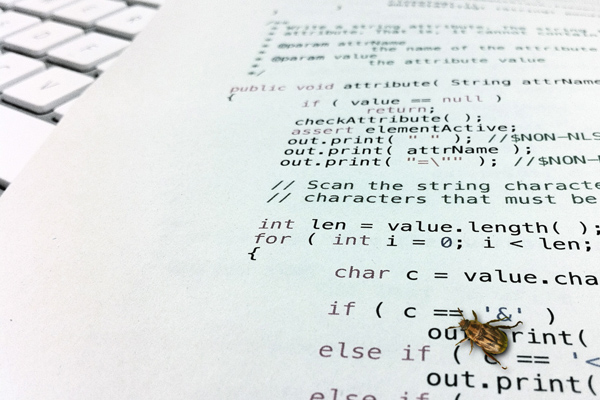 /**
* Write a string attribute. The string
attribute. That is, it cannot
*
* @param attrName
* the name of the attribute
* @param value
* the attribute value
*/
public void attribute( String attrName
{
if ( value == null )
return;
checkAttribute( );
assert elementActive;
out.print( " " ); //$NON-NLS
out.print( attrName );
out.print( "=\"" ); //$NON-
// Scan the string characte
// characters that must be
int len = value.length( );
for ( int i = 0; i < len;
{
char c = value.cha
if ( c == '&' )
print(
else if ( c == '<
out.print(
else if (